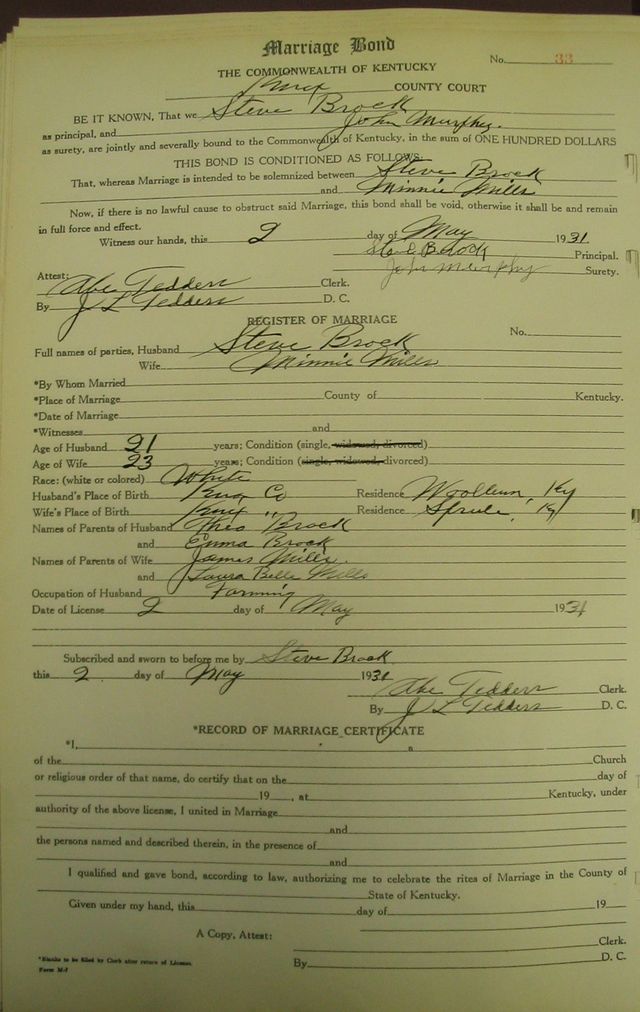 Marriage Bond
No. 33
THE COMMONWEALTH OF KENTUCKY
Knox COUNTY COURT
BE IT KNOWN, That we Steve Brock
as principal, and John Murphy.
as surety, are jointly and severally bound to the Commonwealth of Kentucky, in the sum of ONE HUNDRED DOLLARS
THIS BOND IS CONDITIONED AS FOLLOWS:
That, whereas Marriage is intended to be solemnized between Steve Brock
and Minnie Mills
Now, if there is no lawful cause to obstruct said Marriage, this bond shall be void, otherwise it shall be and remain
in full force and effect.
Witness our hands, this 2 day of May 1931.
Steve Brock Principal.
John Murphy Surety.
Attest:
Abe Tedders Clerk.
By J L Tedders D. C.
REGISTER OF MARRIAGE
No.
Full names of parties, Husband Steve Brock
Wife Minnie Mills
*By Whom Married
*Place of Marriage County of Kentucky.
*Date of Marriage
*Witnesses and
Age of Husband 21 years; Condition (single, widowed, divorced)
Age of Wife 23 years; Condition (single, widowed, divorced)
Race: (white or colored) White
Husband's Place of Birth Knox Co Residence Woollum, Ky
Wife's Place of Birth Knox " Residence Sprule, Ky
Names of Parents of Husband Theo Brock
and Emma Brock
Names of Parents of Wife James Mills.
and Laura Belle Mills
Occupation of Husband Farming
Date of License 2 day of May 1931
Subscribed and sworn to before me by Steve Brock
this 2 day of May 1931
Abe Tedders Clerk.
By J L Tedders D. C.
*RECORD OF MARRIAGE CERTIFICATE
*I, a
of the Church
or religious order of that name, do certify that on the day of
19 , at Kentucky, under
authority of the above license, I united in Marriage
and
the persons named and described therein, in the presence of
and
I qualified and gave bond, according to law, authorizing me to celebrate the rites of Marriage in the County of
State of Kentucky.
Given under my hand, this day of 19
A Copy, Attest:
Clerk.
By D. C.
*Blanks to be filled by Clerk after return of License.
Form M-7